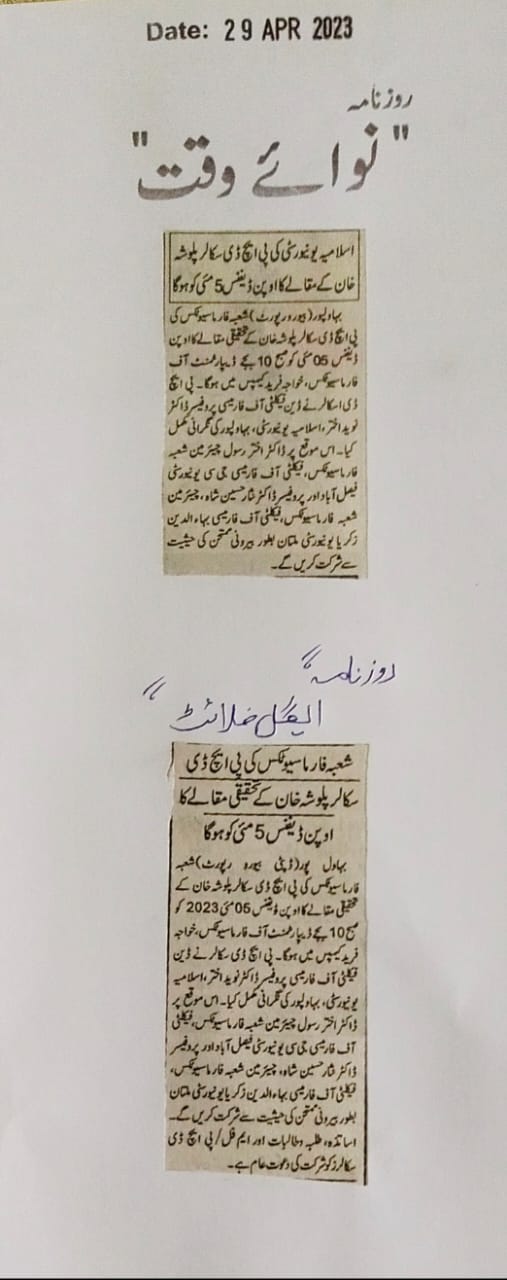 Date: 29 APR 2023
روزنامہ
"نوائے وقت"
اسلامیہ یونیورسٹی کی پی ایچ ڈی سکالر پلوشہ
خان کے مقالے کا اوپن ڈیفنس 5 مئی کو ہوگا
بہاولپور (بیورو رپورٹ) شعبہ فارماسیوٹکس کی
پی ایچ ڈی سکالر پلوشہ خان کے تحقیقی مقالے کا اوپن
ڈیفنس 05 مئی کو صبح 10 بجے ڈیپارٹمنٹ آف
فارماسیوٹکس، خواجہ فرید کیمپس میں ہوگا۔ پی ایچ
ڈی اسکالر نے ڈین فیکلٹی آف فارمیسی پروفیسر ڈاکٹر
نوید اختر، اسلامیہ یونیورسٹی، بہاولپور کی نگرانی مکمل
کیا۔ اس موقع پر ڈاکٹر اختر رسول چیئرمین شعبہ
فارماسیوٹکس، فیکلٹی آف فارمیسی جی سی یونیورسٹی
فیصل آباد اور پروفیسر ڈاکٹر نثار حسین شاہ، چیئرمین
شعبہ فارماسیوٹکس، فیکلٹی آف فارمیسی بہاء الدین
زکریا یونیورسٹی ملتان بطور بیرونی ممتحن کی حیثیت
سے شرکت کریں گے۔
روزنامہ "
ایگل فلائٹ "
شعبہ فارماسیوٹکس کی پی ایچ ڈی
سکالر پلوشہ خان کے تحقیقی مقالے کا
اوپن ڈیفنس 5 مئی کو ہوگا
بہاول پور (ڈپٹی بیورو رپورٹ) شعبہ
فارماسیوٹکس کی پی ایچ ڈی سکالر پلوشہ خان کے
تحقیقی مقالے کا اوپن ڈیفنس 05 مئی 2023 کو
صبح 10 بجے ڈیپارٹمنٹ آف فارماسیوٹکس، خواجہ
فرید کیمپس میں ہوگا۔ پی ایچ ڈی سکالر نے ڈین
فیکلٹی آف فارمیسی پروفیسر ڈاکٹر نوید اختر، اسلامیہ
یونیورسٹی، بہاولپور کی نگرانی مکمل کیا۔ اس موقع پر
ڈاکٹر اختر رسول چیئرمین شعبہ فارماسیوٹکس، فیکلٹی
آف فارمیسی جی سی یونیورسٹی فیصل آباد اور پروفیسر
ڈاکٹر نثار حسین شاہ، چیئرمین شعبہ فارماسیوٹکس،
فیکلٹی آف فارمیسی بہاء الدین زکریا یونیورسٹی ملتان
بطور بیرونی ممتحن کی حیثیت سے شرکت کریں گے۔
اساتذہ، طلبہ و طالبات اور ایم فل/پی ایچ ڈی
سکالرز کو شرکت کی دعوت عام ہے۔